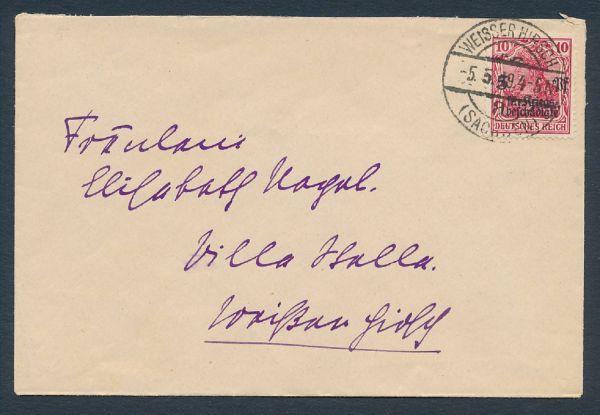 WEISSER HIRSCH
-5.5.19.4-5N.
(SACHSEN)
10 10
5 Pf
für Kriegs-
beschädigte
DEUTSCHES REICH
Fräulein
Elisabeth Nagel.
Villa Stella.
Weißer Hirsch